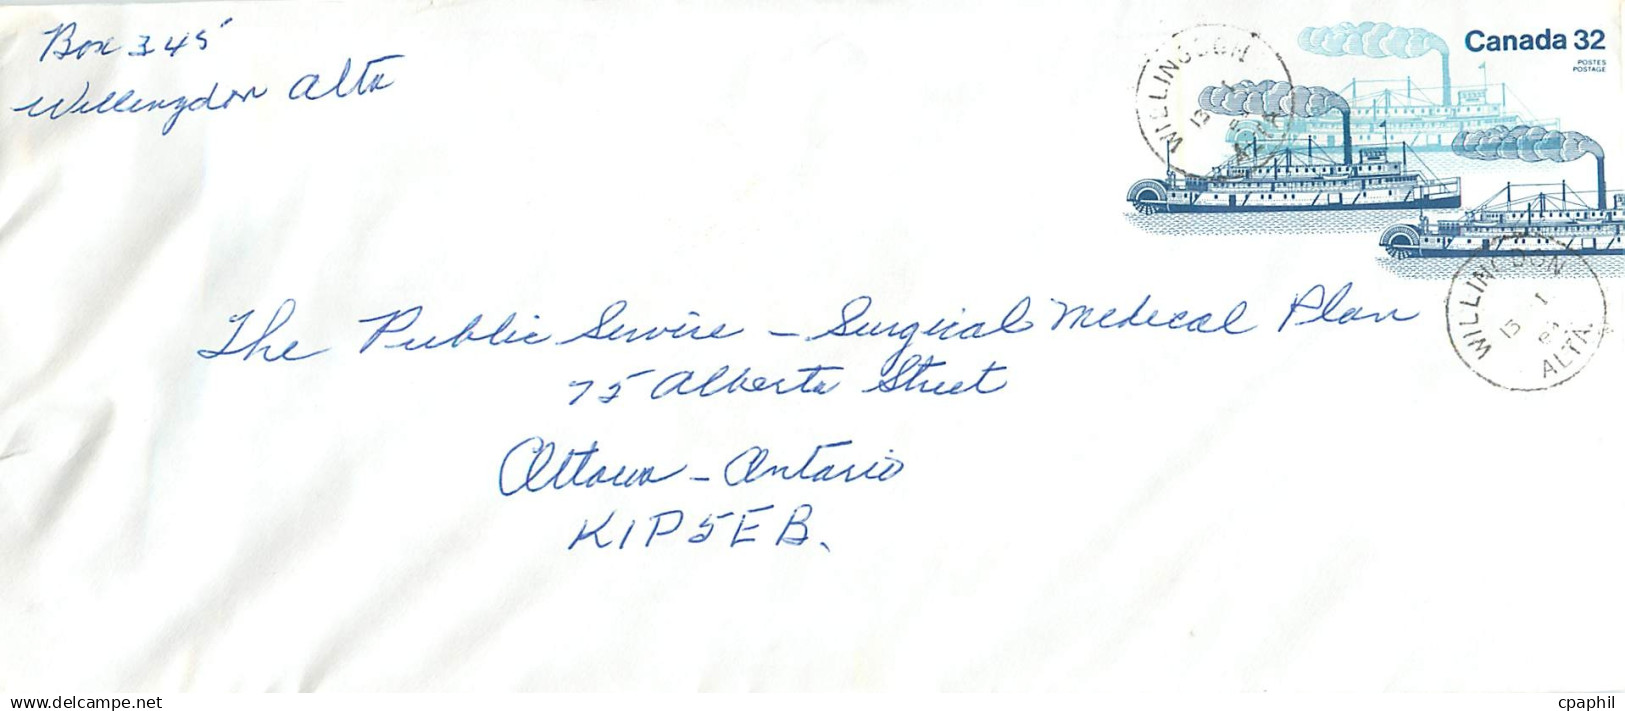 Box 345
Willingdon Alta
Canada 32
POSTES
POSTAGE
WILLINGDON
13 I
ALTA
The Public Service - Surgical Medical Plan
75 Alberta Street
Ottawa - Ontario
K1P5EB.
WILLINGDON
13 I
ALTA.
delcampe.net
cpaphil